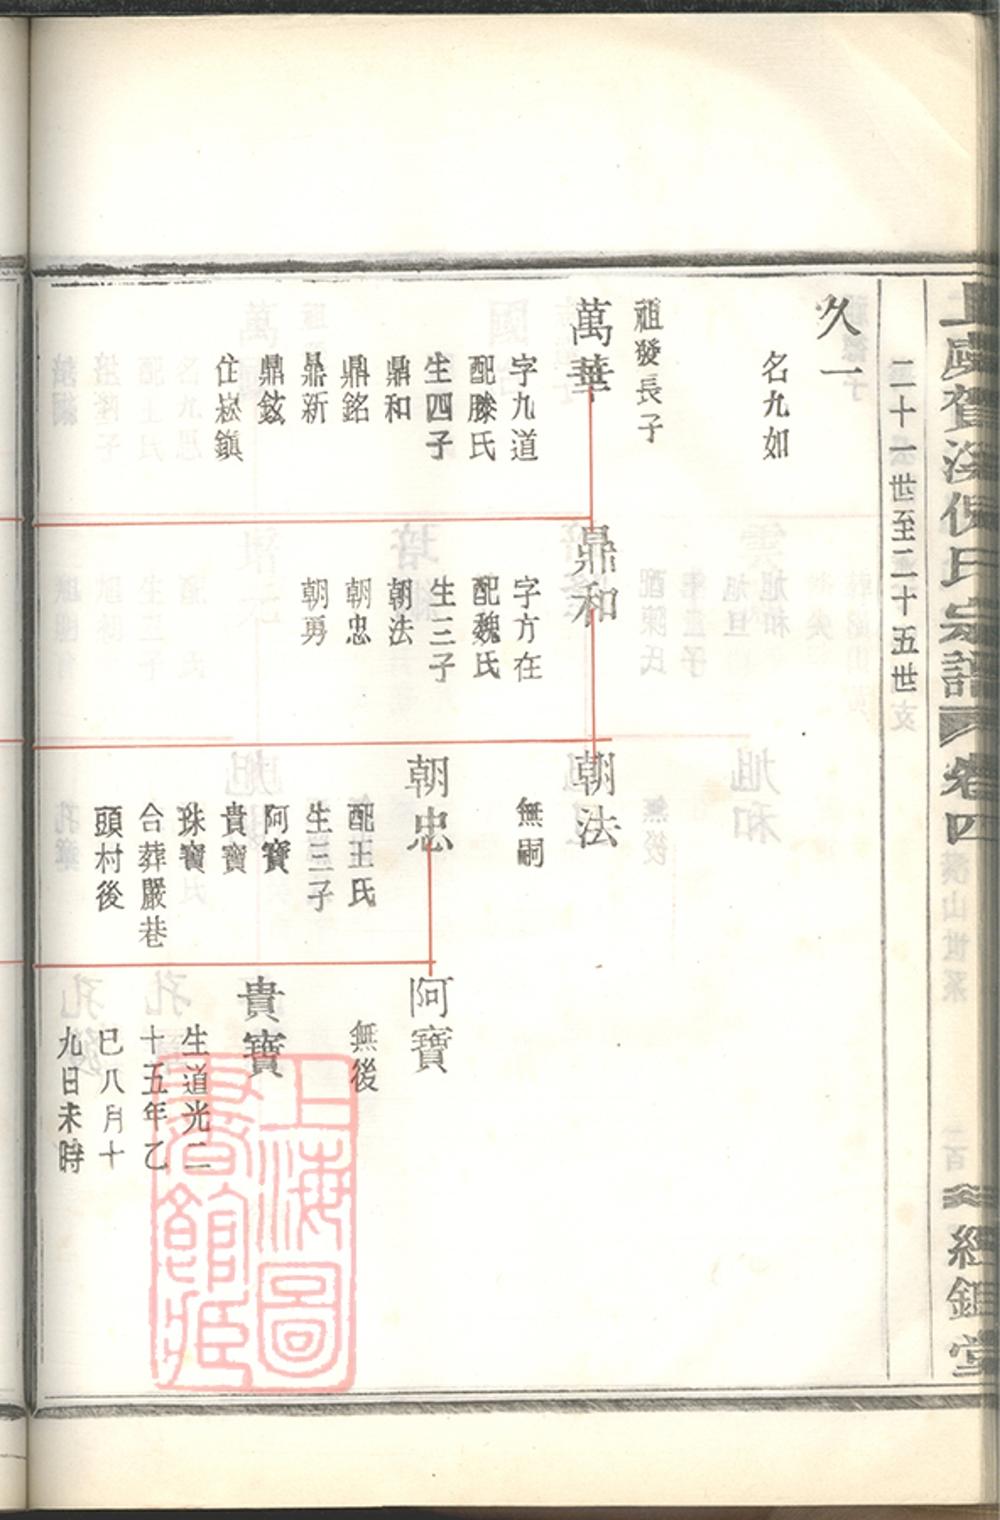 上虞賀溪倪氏宗譜 卷四
經鉏堂
二十一世至二十五世
久一
名九如
祖發長子
萬華
字九道
配滕氏
生四子
鼎和
鼎銘
鼎新
鼎鉉
住崧鎮
鼎和
字方在
配魏氏
生三子
朝法
朝忠
朝勇
朝法
無嗣
朝忠
配王氏
生三子
阿寶
貴寶
珠寶
合葬嚴巷
頭村後
阿寶
無後
貴寶
生道光二
十五年乙
巳八月十
九日未時
上海圖
書館藏